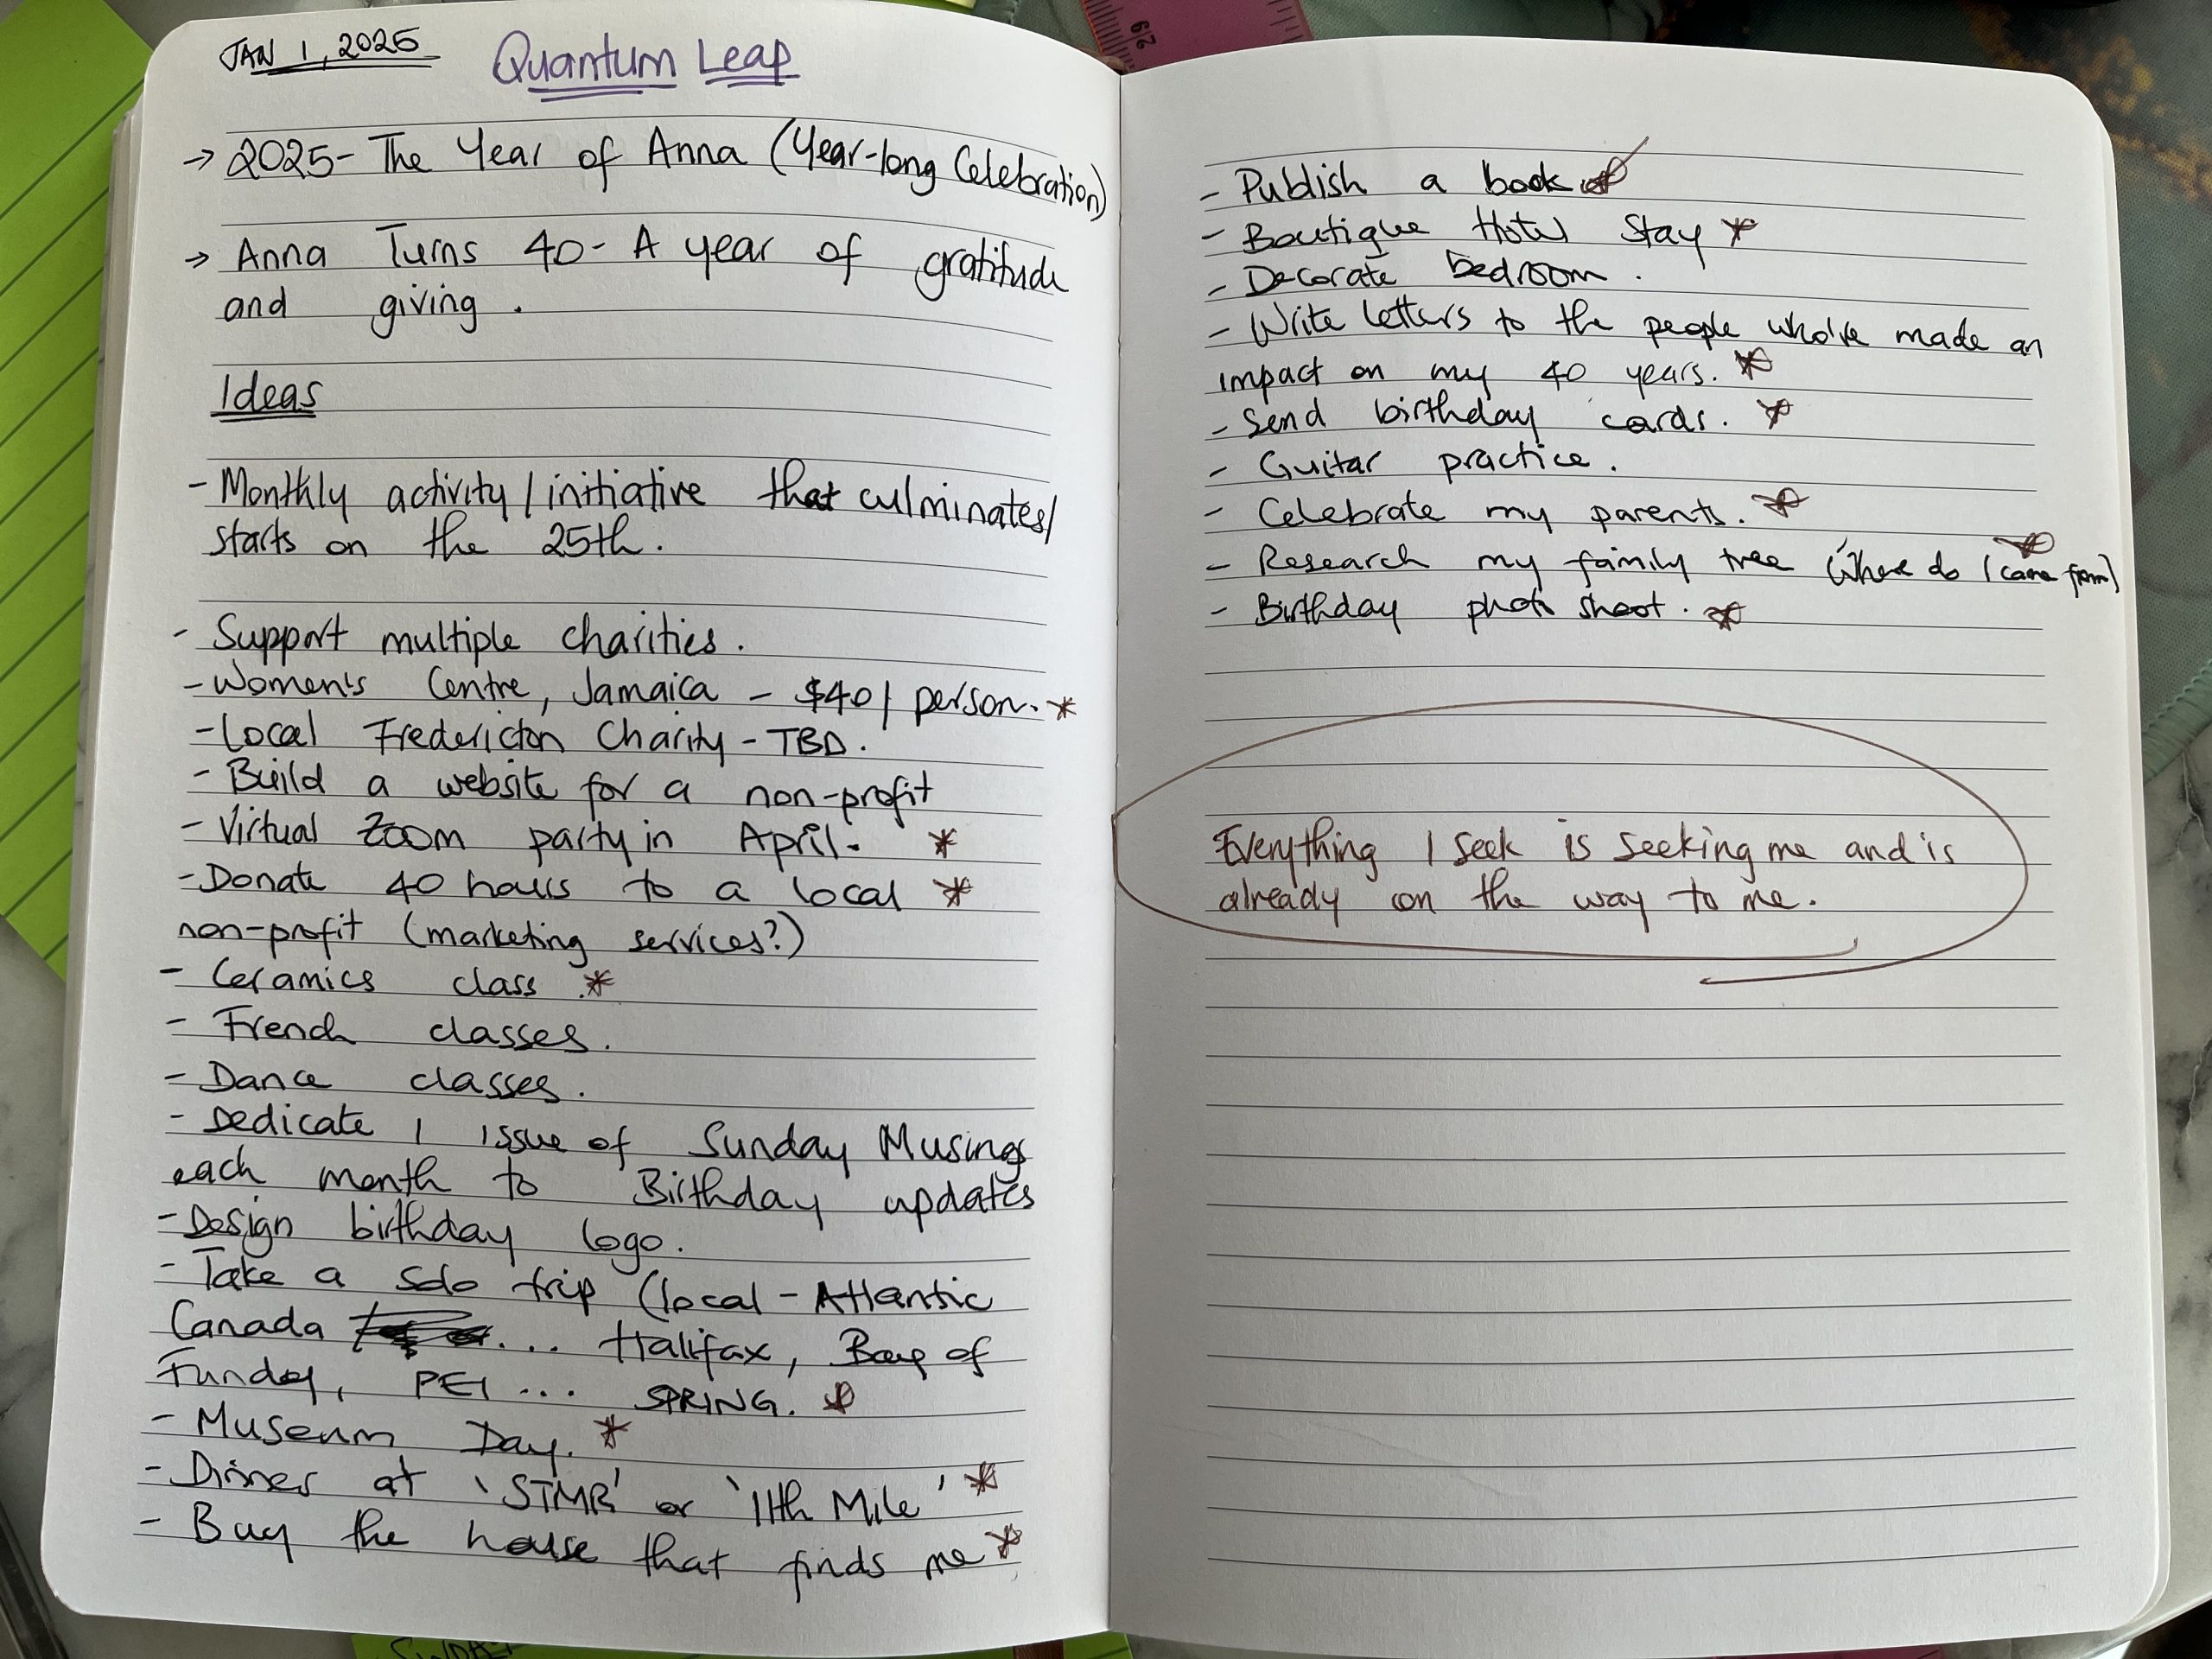 JAN 1, 2025
Quantum Leap
→ 2025- The Year of Anna (Year-long Celebration)
→ Anna Turns 40- A year of gratitude
and giving.
Ideas
- Monthly activity/initiative that culminates/
starts on the 25th.
- Support multiple charities.
- Women's Centre, Jamaica - $40/person. *
- Local Fredericton Charity - TBD.
- Build a website for a non-profit
- Virtual Zoom party in April. *
- Donate 40 hours to a local *
non-profit (marketing services?)
- Ceramics class. *
- French classes.
- Dance classes.
- Dedicate 1 issue of Sunday Musings
each month to Birthday updates
- Design birthday logo.
- Take a solo trip (local - Atlantic
Canada ... Halifax, Bay of
Fundy, PEI ... SPRING. *
- Museum Day. *
- Dinner at 'STMR' or '11th Mile' *
- Buy the house that finds me *
- Publish a book *
- Boutique Hotel Stay *
- Decorate bedroom.
- Write letters to the people who've made an
impact on my 40 years. *
- Send birthday cards. *
- Guitar practice.
- Celebrate my parents. *
- Research my family tree (Where do I come from) *
- Birthday photo shoot. *
Everything I seek is seeking me and is
already on the way to me.
29